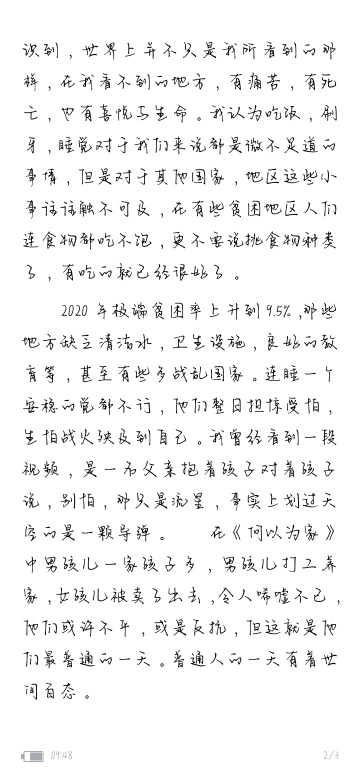 识到，世界上并不只是我所看到的那
样，在我看不到的地方，有痛苦，有死
亡，也有喜悦与生命。我认为吃饭，刷
牙，睡觉对于我们来说都是微不足道的
事情，但是对于其他国家，地区这些小
事往往触不可及，在有些贫困地区人们
连食物都吃不饱，更不要说挑食物种类
了，有吃的就已经很好了。
2020年极端贫困率上升到9.5%,那些
地方缺乏清洁水，卫生设施，良好的教
育等，甚至有些多战乱国家。连睡一个
安稳的觉都不行，他们整日担惊受怕，
生怕战火殃及到自己。我曾经看到一段
视频，是一币父亲抱着孩子对着孩子
说，别怕，那只是流星，事实上划过天
空的是一颗导弹。 在《何以为家》
中男孩儿一家孩子多，男孩儿打工养
家,女孩儿被卖了出去,令人唏嘘不已，
他们或许不平，或是反抗，但这就是他
们最普通的一天。普通人的一天有着世
间百态。
09:48
2/3